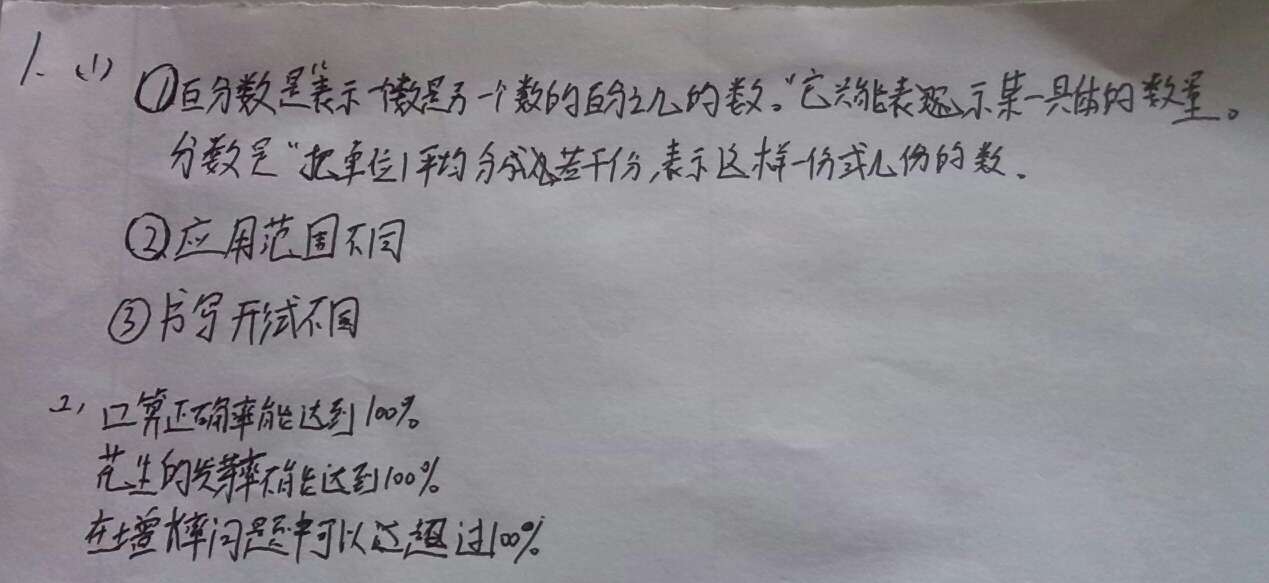 1. (1) ①百分数是“表示一个数是另一个数的百分之几的数。”它只能表示某一具体的数量。
分数是“把单位1平均分成若干份,表示这样一份或几份的数.
②应用范围不同
③书写形式不同
2, 口算正确率能达到100%
花生的发芽率不能达到100%
在增长率问题中可以超过100%